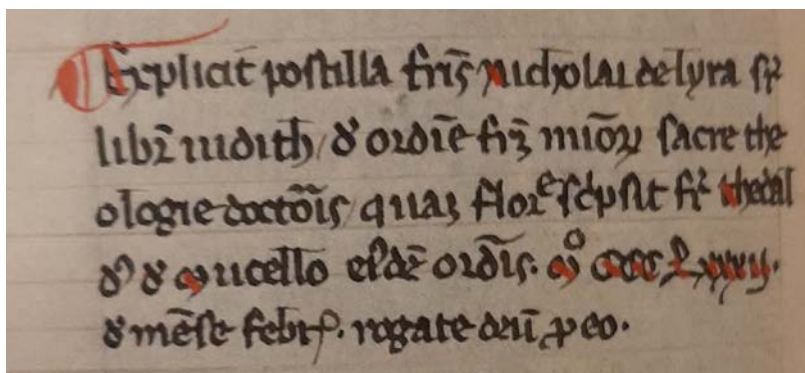 Explicit postilla fr̄is Nicholai de lyra sr̄
libr̄ iudith / de ordīe fr̄ȝ miōꝝ sacre the
ologie doctōis / quaʒ flor̄e sc̄psit fr̄ thedal
dꝰ de Mucello eiusdē ordīs. Mᵒ ccc lxxxxij.
de mēse febrꝭ. rogate deū ꝓ eo.